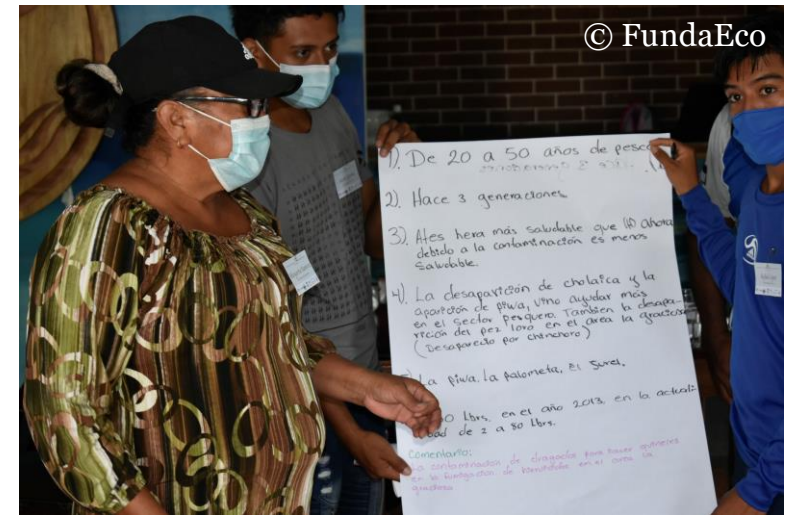 © FundaEco
1). De 20 a 50 años de pesca
2). Hace 3 generaciones
3). Ates hera más saludable que ahora
debido a la contaminación es menos
saludable.
4). La desaparición de cholaica y la
aparición de piwa, vino ayudar más
en el sector pesquero. Tambien la desapa-
rición del pez loro en el area la graciosa
(Desaparecio por chinchoro)
La piwa. La palometa. El surel.
Lbrs. en el año 2013. en la actuali-
dad de 2 a 80 Lbrs.
Comentario:
La contaminacion de dragados para hacer
en la fundigacion de en el area la
graciosa